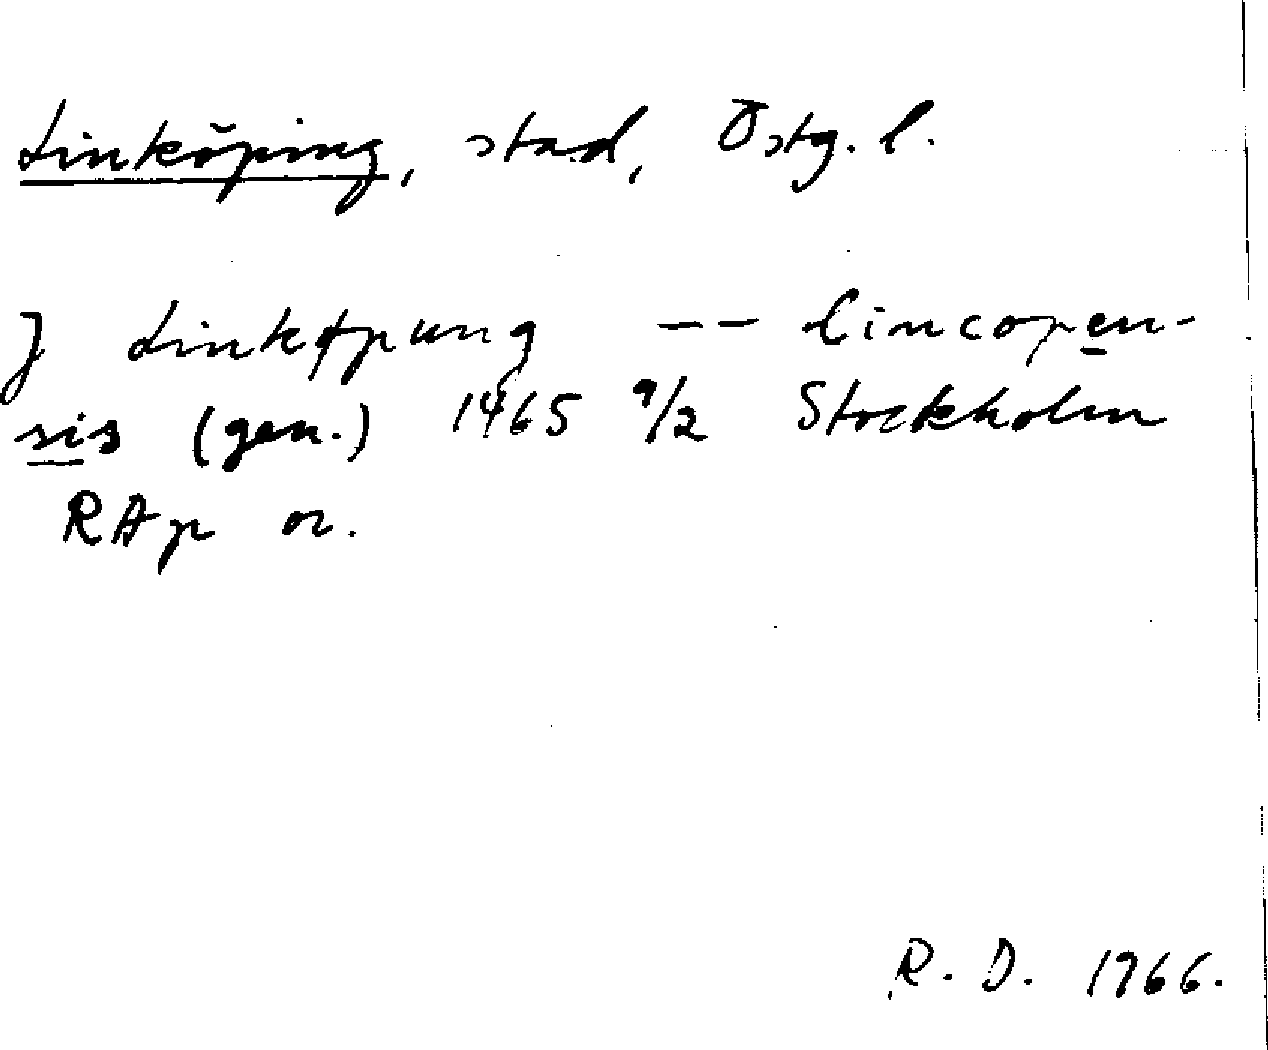 Linköping, stad, Östg. l.
J Linkøpung -- lincopen-
sis (gen.) 1465 9/2 Stockholm
RAp or.
R. D. 1966.